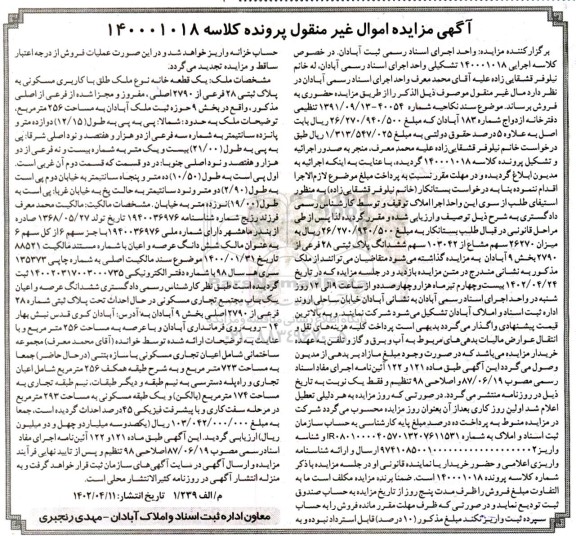 آگهی مزایده اموال غیر منقول پرونده کلاسه ۱۴۰۰۰۱۰۱۸
برگزار کننده مزایده: واحد اجرای اسناد رسمی ثبت آبادان. در خصوص
کلاسه اجرایی ۱۴۰۰۰۱۰۱۸ تشکیلی واحد اجرای اسناد رسمی آبادان، له خانم
نیلوفر قشقایی زاده علیه آقای محمد معرف واحد اجرای اسناد رسمی آبادان در
نظر دارد مال غیر منقول موصوف ذیل الذکر را از طریق مزایده حضوری به
فروش برساند. موضوع سند نکاحیه شماره ۴۰۰۵۴-۱۳۹۱/۰۹/۱۳ تنظیمی
دفترخانه ازدواج شماره ۱۸۳ آبادان که مبلغ ۲۶/۲۷۰/۹۴۰/۵۰۰ ریال بابت
اصل به علاوه ۵ درصد حقوق دولتی به مبلغ ۱/۳۱۳/۵۴۷/۰۲۵ ریال طبق
درخواست خانم نیلوفر قشقایی زاده علیه محمد معرف، منجر به صدور اجرائیه
و تشکیل پرونده کلاسه ۱۴۰۰۰۱۰۱۸ گردیده، با عنایت به اینکه اجرائیه به
مدیون ابلاغ گردیده و در مهلت مقرر نسبت به پرداخت مبلغ موضوع لازم الاجرا
اقدام ننموده بنا به درخواست بستانکار (خانم نیلوفر قشقایی زاده) به منظور
استیفای طلب از سوی این واحد اجرا املاک توقیف و توسط کارشناس رسمی
دادگستری به شرح ذیل توصیف و ارزیابی شده و مقرر گردیده لذا پس از طی
مراحل قانونی در قبال طلب بستانکار به مبلغ ۲۶/۲۷۰/۹۴۰/۵۰۰ ریال به
میزان ۲۶۲۷۰ سهم مشاع از ۱۰۳۰۴۲ سهم ششدانگ پلاک ثبتی ۲۸ فرعی از
۲۷۹۰ بخش ۹ آبادان به مزایده گذاشته می‌شود متقاضیان می‌توانند از ملک
مذکور به نشانی مندرج در متن مزایده بازدید و در جلسه مزایده که در تاریخ
۱۴۰۲/۰۴/۲۴ بیست وچهارم تیرماه هزار و چهارصد و دو از ساعت ۹ الی ۱۲ روز
شنبه در واحد اجرای اسناد رسمی آبادان به نشانی آبادان خیابان ساحلی اروند
اداره ثبت اسناد و املاک آبادان تشکیل می‌شود شرکت نمایند و به بالاترین
قیمت پیشنهادی واگذار می‌گردد بدیهی است پرداخت کلیه هزینه‌های نقل و
انتقال و عوارض مالیات بدهی‌های مربوط به آب و برق و گاز و تلفن به عهده
خریدار مزایده می‌باشد که در صورت وجود مبلغ مازاد بر بدهی از مدیون
وصول می‌گردد این آگهی طبق ماده ۱۲۱ و ۱۲۲ آئین‌نامه اجرای مفاد اسناد
رسمی مصوب ۸۷/۰۶/۱۹ و اصلاحی ۹۸ تنظیم و فقط یک نوبت به تاریخ
ذیل در روزنامه منتشر می‌گردد. در صورتی که روز مزایده به هر دلیلی تعطیل
اعلام شد اولین روز کاری بعد از آن بعنوان روز مزایده محسوب می‌گردد شرکت
در مزایده منوط به پرداخت ده درصد مبلغ پایه کارشناسی به حساب سازمان
ثبت اسناد و املاک به شماره و شناسه
واریز ارسال و ارائه شناسنامه
واریزی اعلامی و حضور خریدار یا نماینده قانونی او در جلسه مزایده با ذکر
شماره کلاسه پرونده ۱۴۰۰۰۱۰۱۸ است. ضمنا برنده مزایده مکلف است ما به
التفاوت مبلغ فروش را ظرف مدت پنج روز از تاریخ مزایده به حساب صندوق
ثبت تودیع نماید و در صورتی که ظرف مهلت مقرر مانده فروش را به حساب
سپرده ثبت واریز نکند مبلغ مذکور (۱۰ درصد) قابل استرداد نبوده و به
حساب خزانه واریز خواهد شد و در این صورت عملیات فروش از درجه اعتبار
ساقط و مزایده تجدید می‌گردد.
مشخصات ملک: یک قطعه خانه نوع ملک طلق با کاربری مسکونی به
پلاک ثبتی ۲۸ فرعی از ۲۷۹۰ اصلی، مفروز و مجزا شده از فرعی از اصلی
مذکور، واقع در بخش ۹ حوزه ثبت ملک آبادان به مساحت ۲۵۶ متر مربع.
توضیحات ملک به حدود: شمالا: پی به پی به طول (۱۲/۱۵) دوازده متر و
پانزده سانتیمتر به شماره سه فرعی از دو هزار و هفتصد و نود اصلی شرقا: پی
به پی به طول (۲۱/۰۰) بیست و یک متر به شماره بیست و نه فرعی از دو
هزار و هفتصد و نود اصلی جنوبا: در دو قسمت که قسمت دوم آن غربی است.
اول پی است به طول (۱۰/۵۰) ده متر و پنجاه سانتیمتر به خیابان دوم پی است
به طول (۲/۹۰) دو متر و نود سانتیمتر به حالت پخ به خیابان غربا: پی است به
طول (۱۹/۰۰) نوزده متر به خیابان. مشخصات مالکیت: مالکیت محمد معرف
فرزند رزیج شماره شناسنامه ۱۹۴۰۰۳۶۹۷۶ تاریخ تولد ۱۳۶۸/۰۵/۲۷ صادره
از بندر ماهشهر دارای شماره ملی ۱۹۴۰۰۳۶۹۷۶ با جز سهم ۶ از کل سهم ۶
به عنوان مالک شش دانگ عرصه و اعیان با شماره مستند مالکیت ۸۸۵۲۱
تاریخ ۱۴۰۰/۰۱/۳۱ موضوع سند مالکیت اصلی به شماره چاپی ۱۳۵۳۷۳
سری ه سال ۹۸ با شماره دفتر الکترونیکی ۱۴۰۰۲۰۳۱۷۰۰۳۰۰۰۷۳۵ ثبت
گردیده است. طبق نظر کارشناس رسمی دادگستری ششدانگ عرصه و اعیان
یک باب مجتمع تجاری مسکونی در حال احداث تحت پلاک ثبتی شماره ۲۸
فرعی از ۲۷۹۰ اصلی بخش ۹ آبادان به آدرس: آبادان کوی قدس نبش بهار
۱۴-روبه روی فرمانداری آبادان و با عرصه به مساحت ۲۵۶ متر مربع و با
عنایت به توضیحات ارائه شده توسط خوانده (آقای محمد معرف) مجموعه
ساختمانی شامل اعیان تجاری مسکونی با سازه بتنی (در حال حاضر) جمعا
به مساحت ۷۲۳ متر مربع و به شرح طبقه همکف ۲۵۶ متر مربع شامل اعیان
تجاری و راه پله دسترسی به نیم طبقه و دیگر طبقات، نیم طبقه تجاری به
مساحت ۱۷۴ متر مربع (بالکن) و یک طبقه مسکونی به مساحت ۲۹۳ متر مربع
در مرحله سفت کاری و با پیشرفت فیزیکی ۴۵ درصد احداث گردیده است. جمعا
به مبلغ ۱۰۳/۰۴۲/۰۰۰/۰۰۰ ریال (یکصد و سه میلیارد و چهل و دو میلیون
ریال) ارزیابی گردید. این آگهی طبق ماده ۱۲۱ و ۱۲۲ آئین‌نامه اجرای مفاد
اسناد رسمی مصوب ۸۷/۰۶/۱۹ و اصلاحی ۹۸ تنظیم و از تایید نهایی فرآیند
مزایده و ارسال آگهی در سایت آگهی‌های سازمان ثبت قرار خواهد گرفت و به
منزله انتشار آگهی در روزنامه کثیرالانتشار محلی است.
م الف ۱/۲۳۹ تاریخ انتشار: ۱۴۰۲/۰۴/۱۱
معاون اداره ثبت اسناد و املاک آبادان - مهدی رنجبری